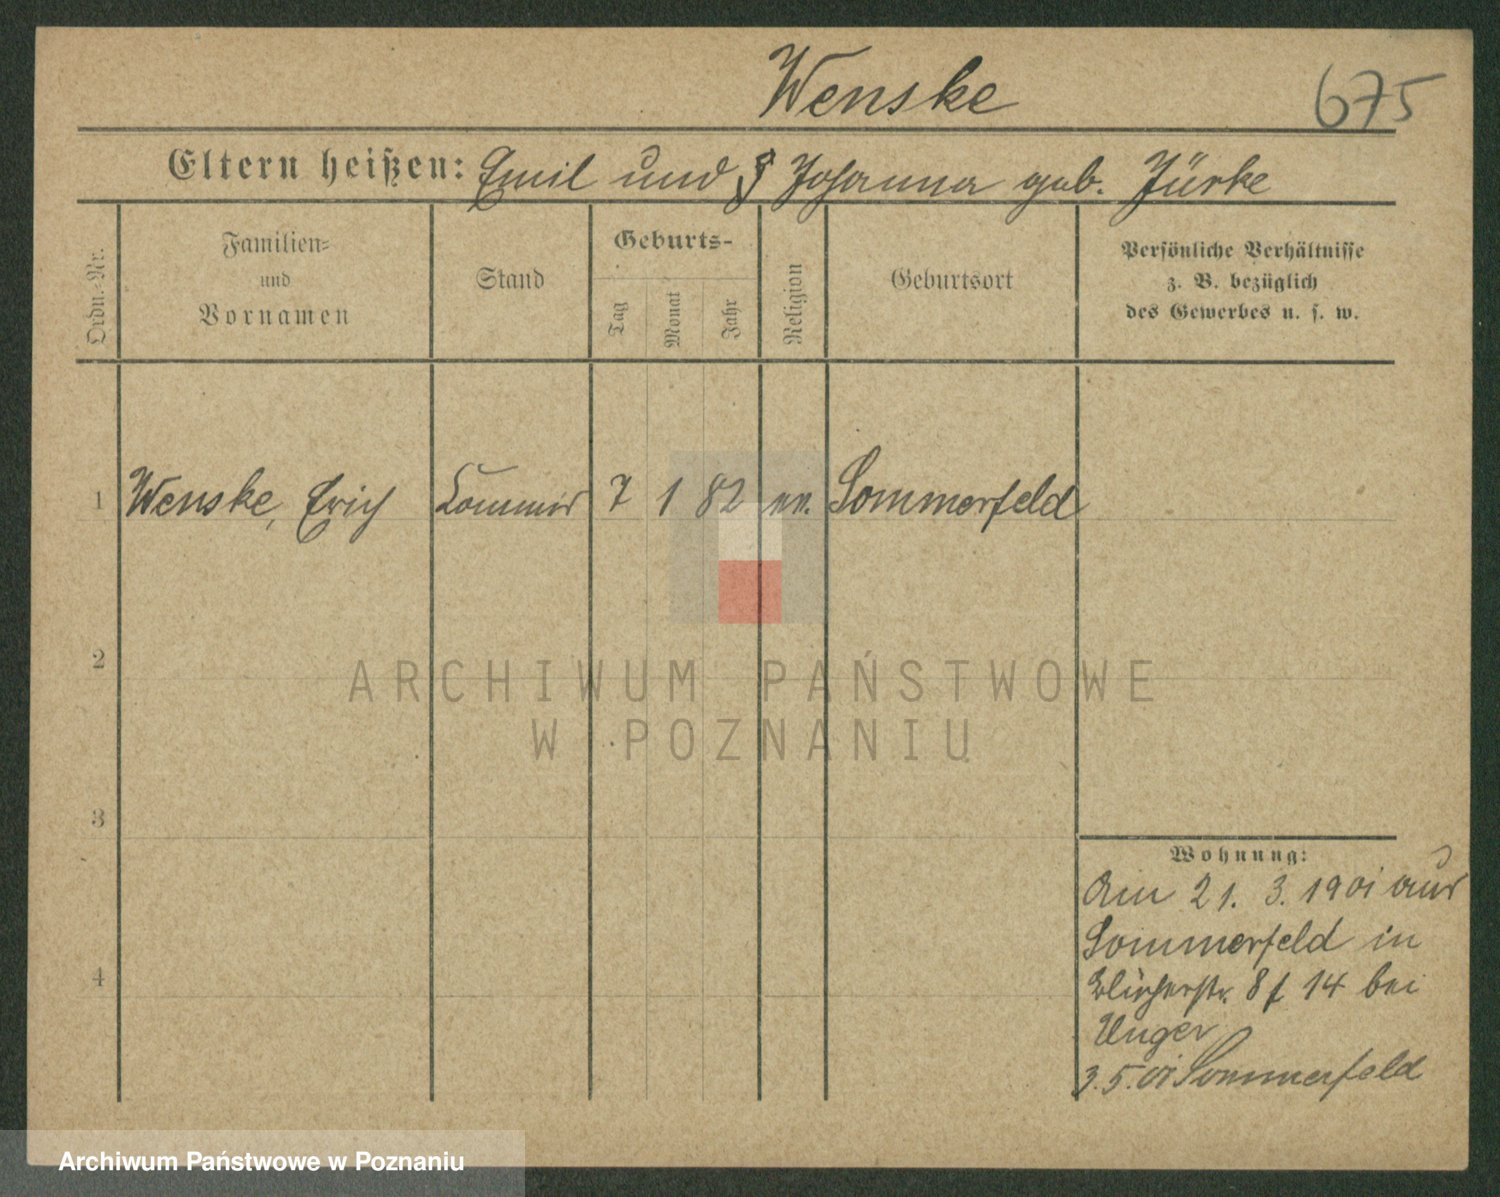 Wenske 675
Eltern heißen: Emil und Johanna geb. Jürke
Ordn.-Nr.
Familien-
und
Vornamen
Stand
Geburts-
Tag
Monat
Jahr
Religion
Geburtsort
Persönliche Verhältnisse
z. B. bezüglich
des Gewerbes u. s. w.
1 Wenske, Erich 7 1 82 Sommerfeld
2
3
4
Wohnung:
Am 21. 3. 1901 aus
Sommerfeld in
Blücherstr. 8 f 14 bei
Unger
3.5.01 Sommerfeld
ARCHIWUM PAŃSTWOWE
W POZNANIU
Archiwum Państwowe w Poznaniu